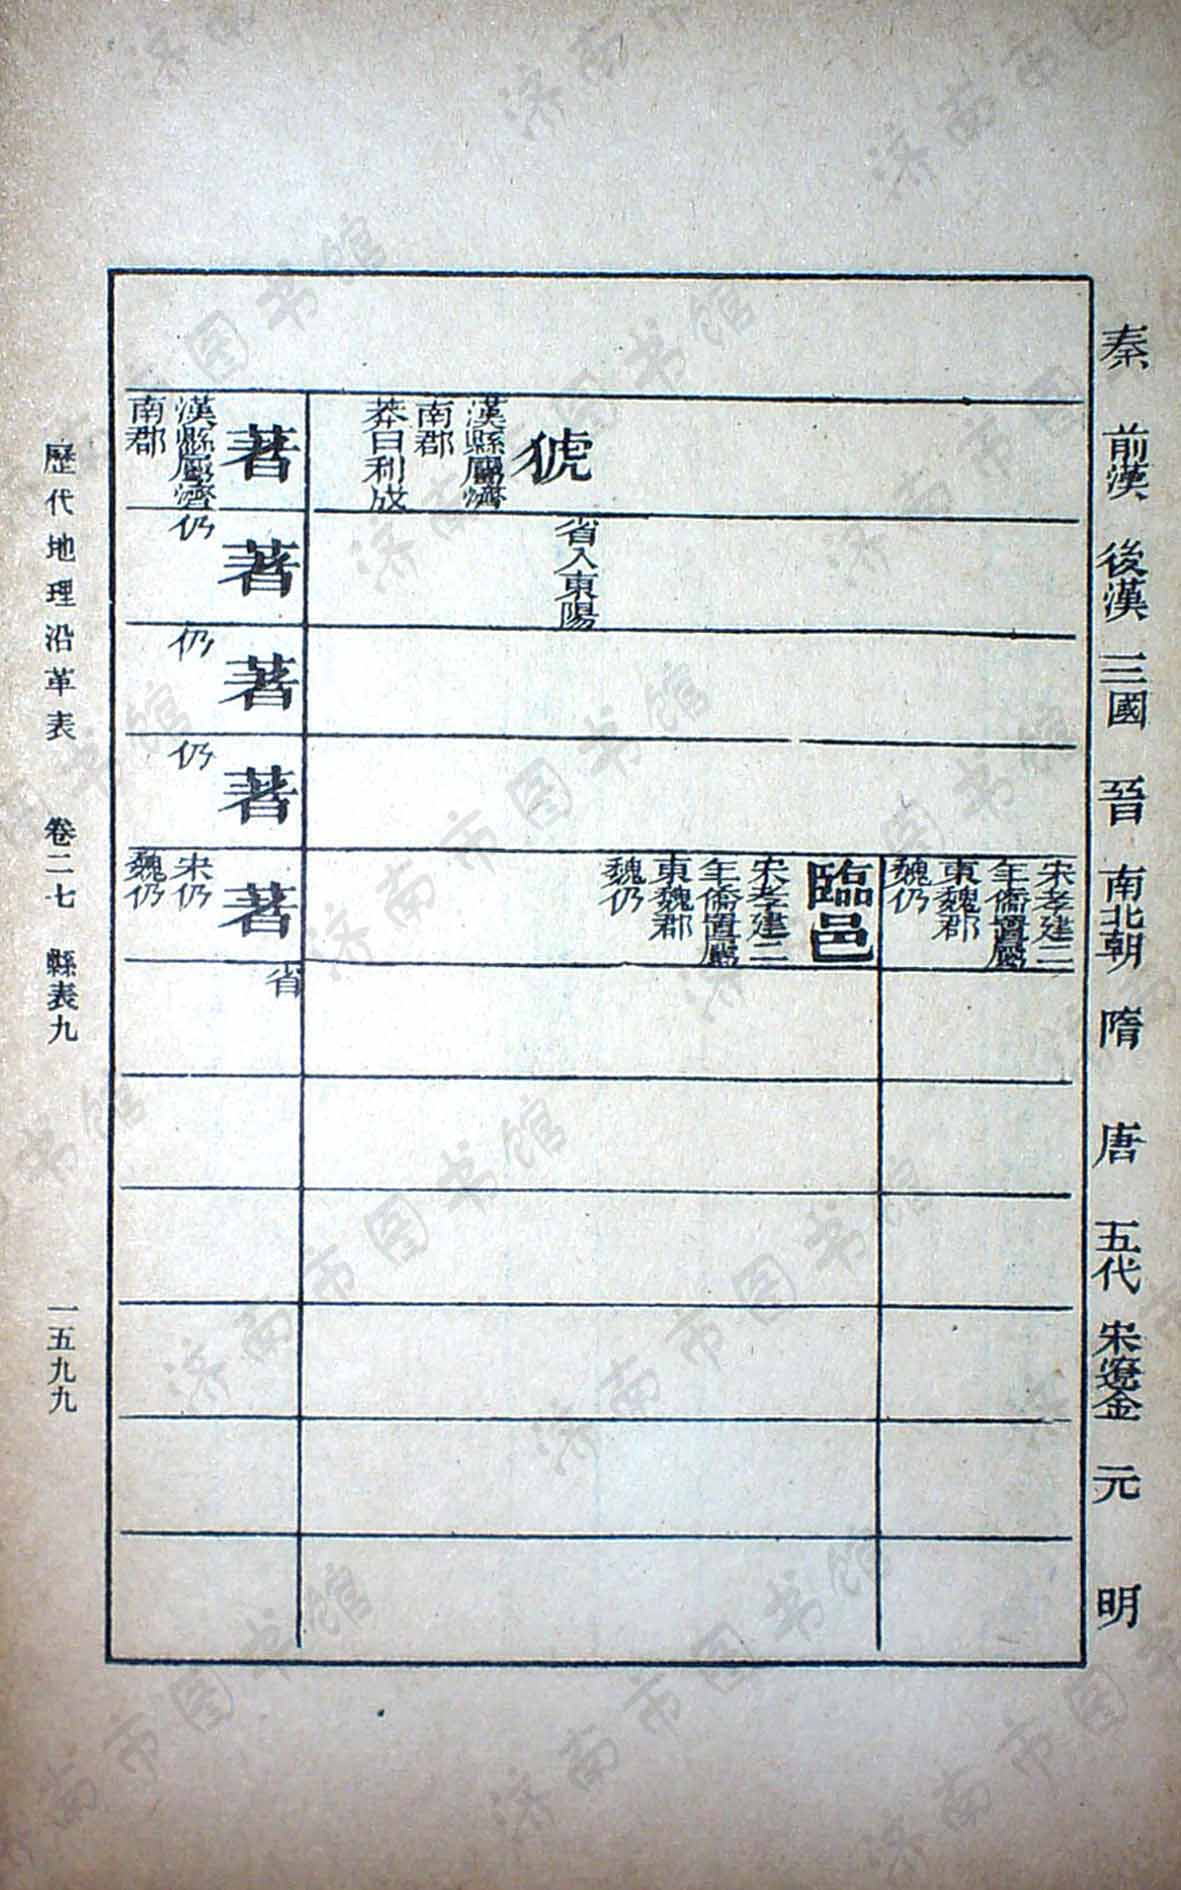 秦
前漢
後漢
三國
晉
南北朝
隋
唐
五代
宋遼金
元
明
宋孝建二
年僑置屬
東魏郡
魏仍
臨邑
宋孝建二
年僑置屬
東魏郡
魏仍
猇
漢縣屬濟
南郡
莽曰利成
省入東陽
著
漢縣屬濟
南郡
著
仍
著
仍
著
仍
著
宋仍
魏仍
省
歷代地理沿革表 卷二七 縣表九 一五九九
济南市图书馆